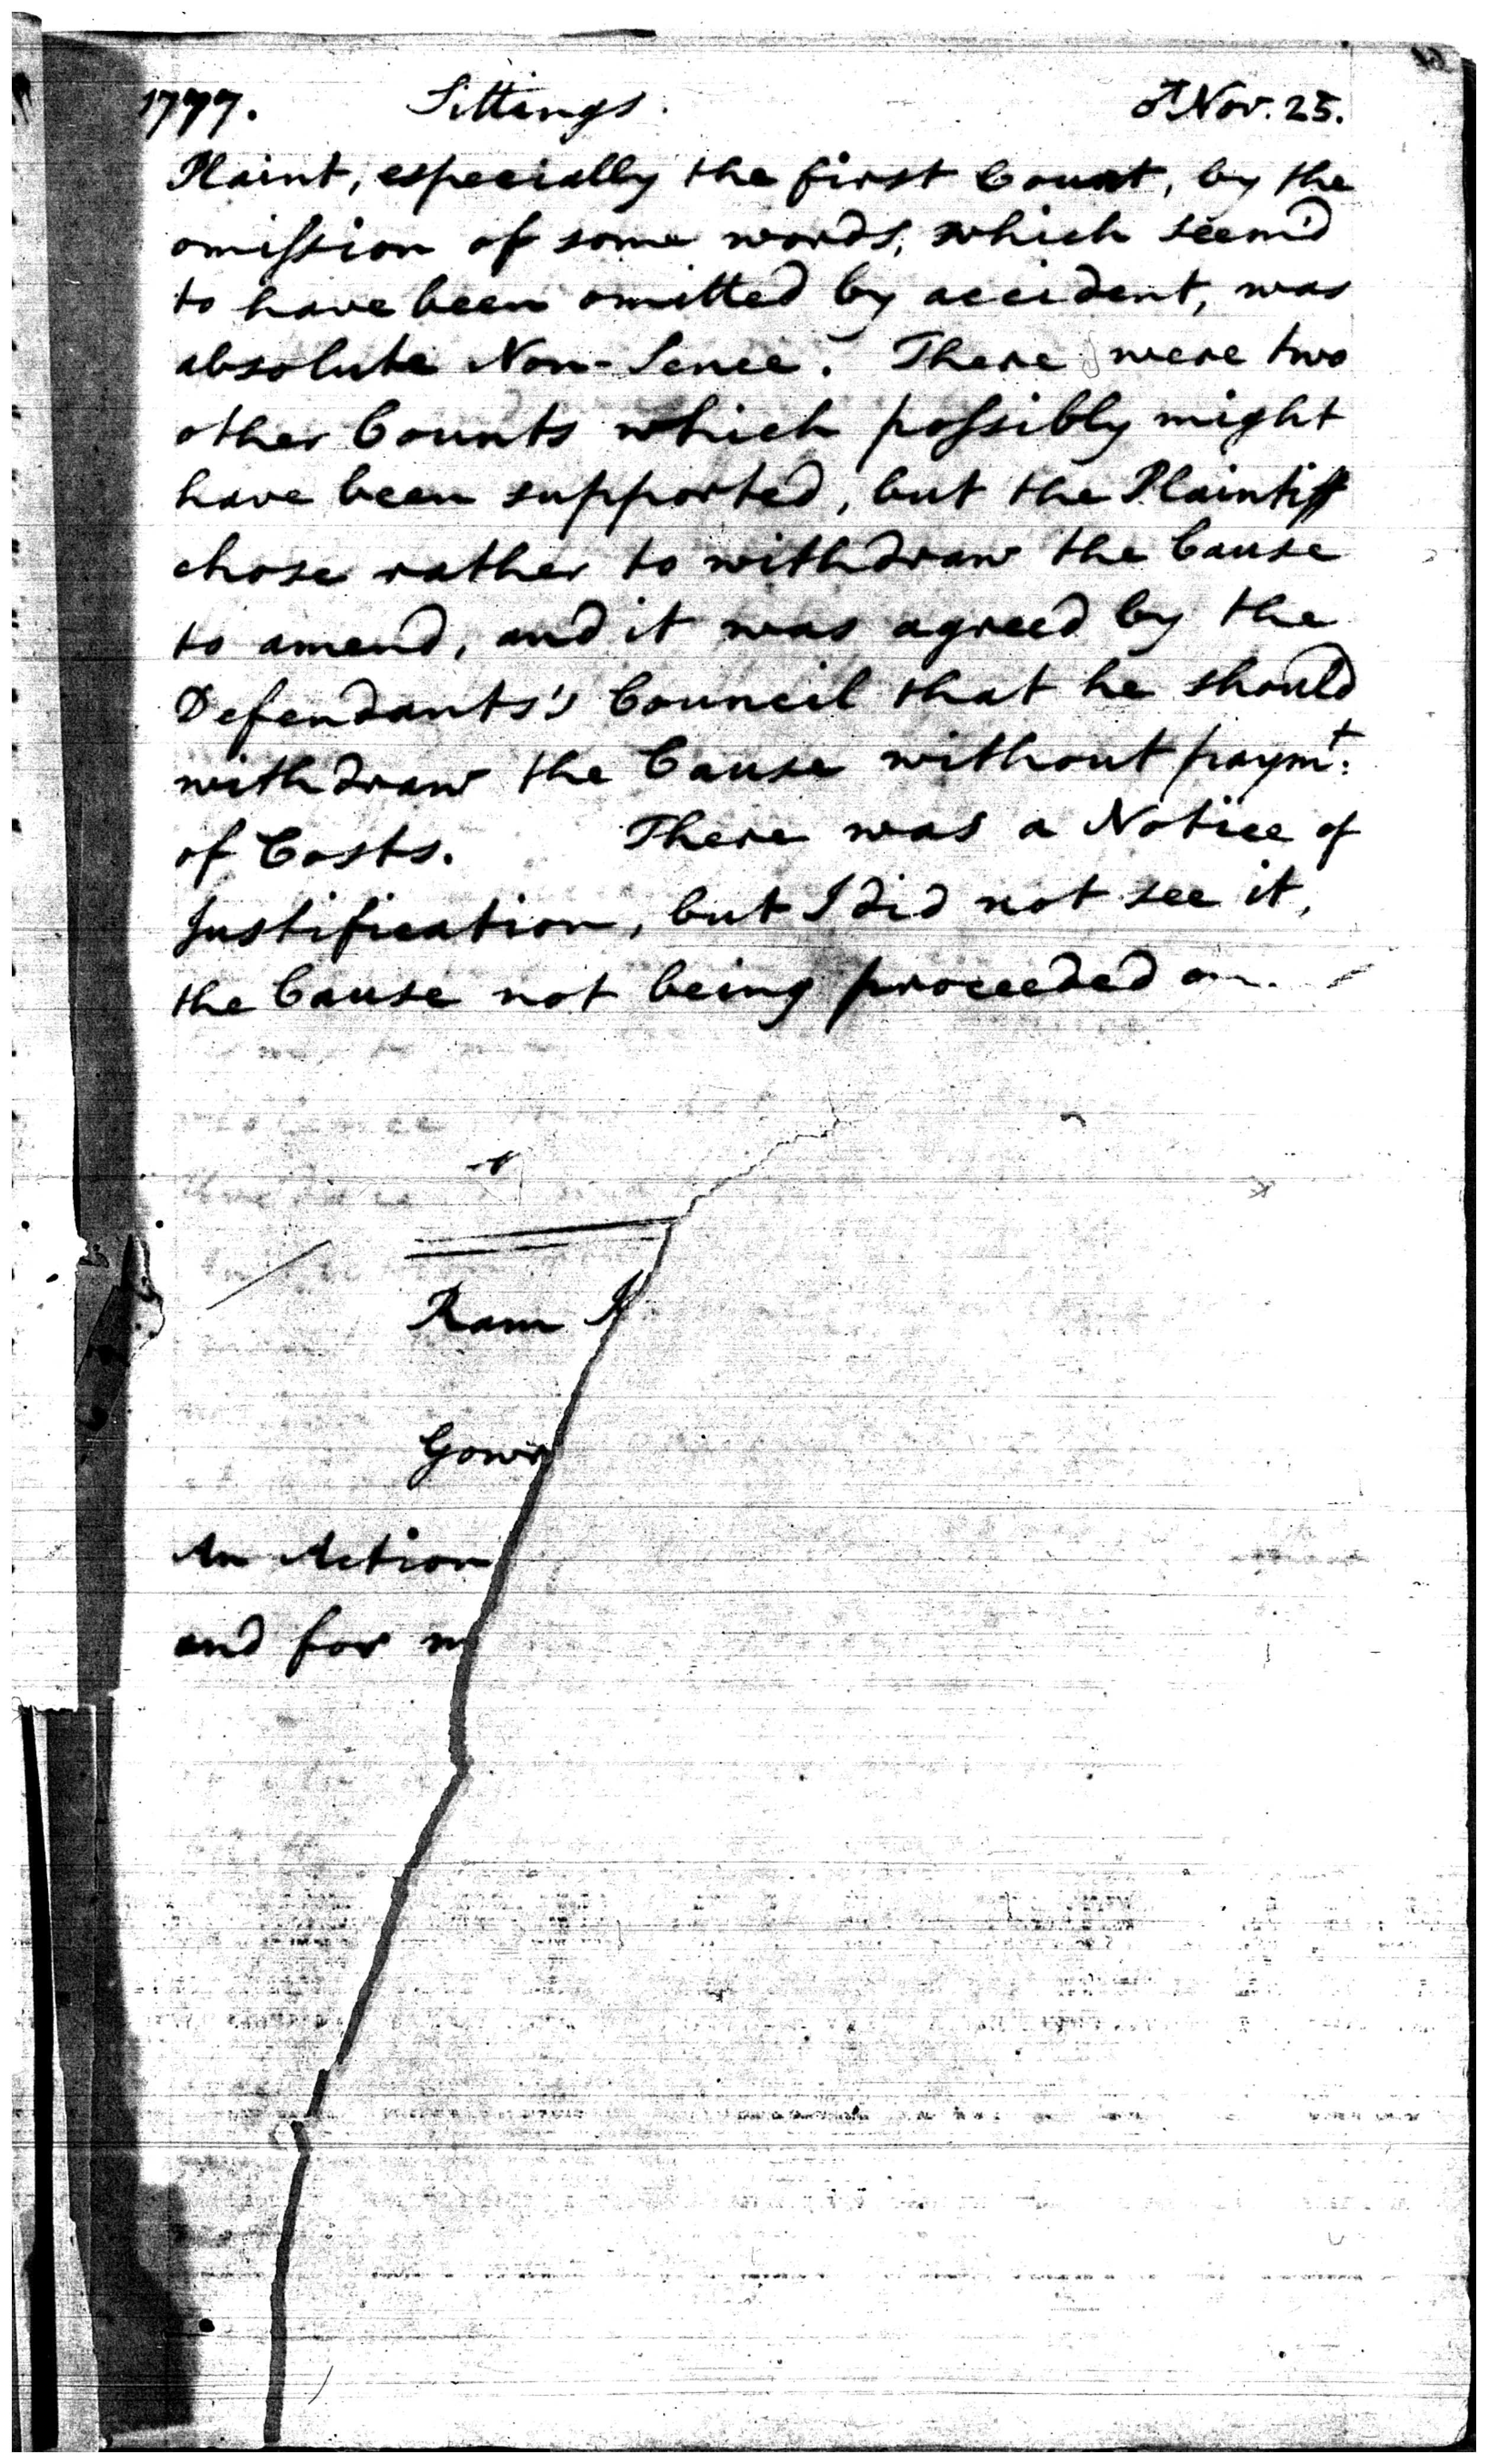 1777. Sittings. ♂ Nov. 25.
Plaint, especially the first Count, by the
omiſsion of some words, which seem'd
to have been omitted by accident, was
absolute Non-Sence. There were two
other Counts which poſsibly might
have been supported, but the Plaintiff
chose rather to withdraw the Cause
to amend, and it was agreed by the
Defendants's Council that he should
withdraw the Cause without paymt:
of Costs. There was a Notice of
Justification, but I did not see it,
the Cause not being proceeded on.
Ram
Gowr
An Action
and for